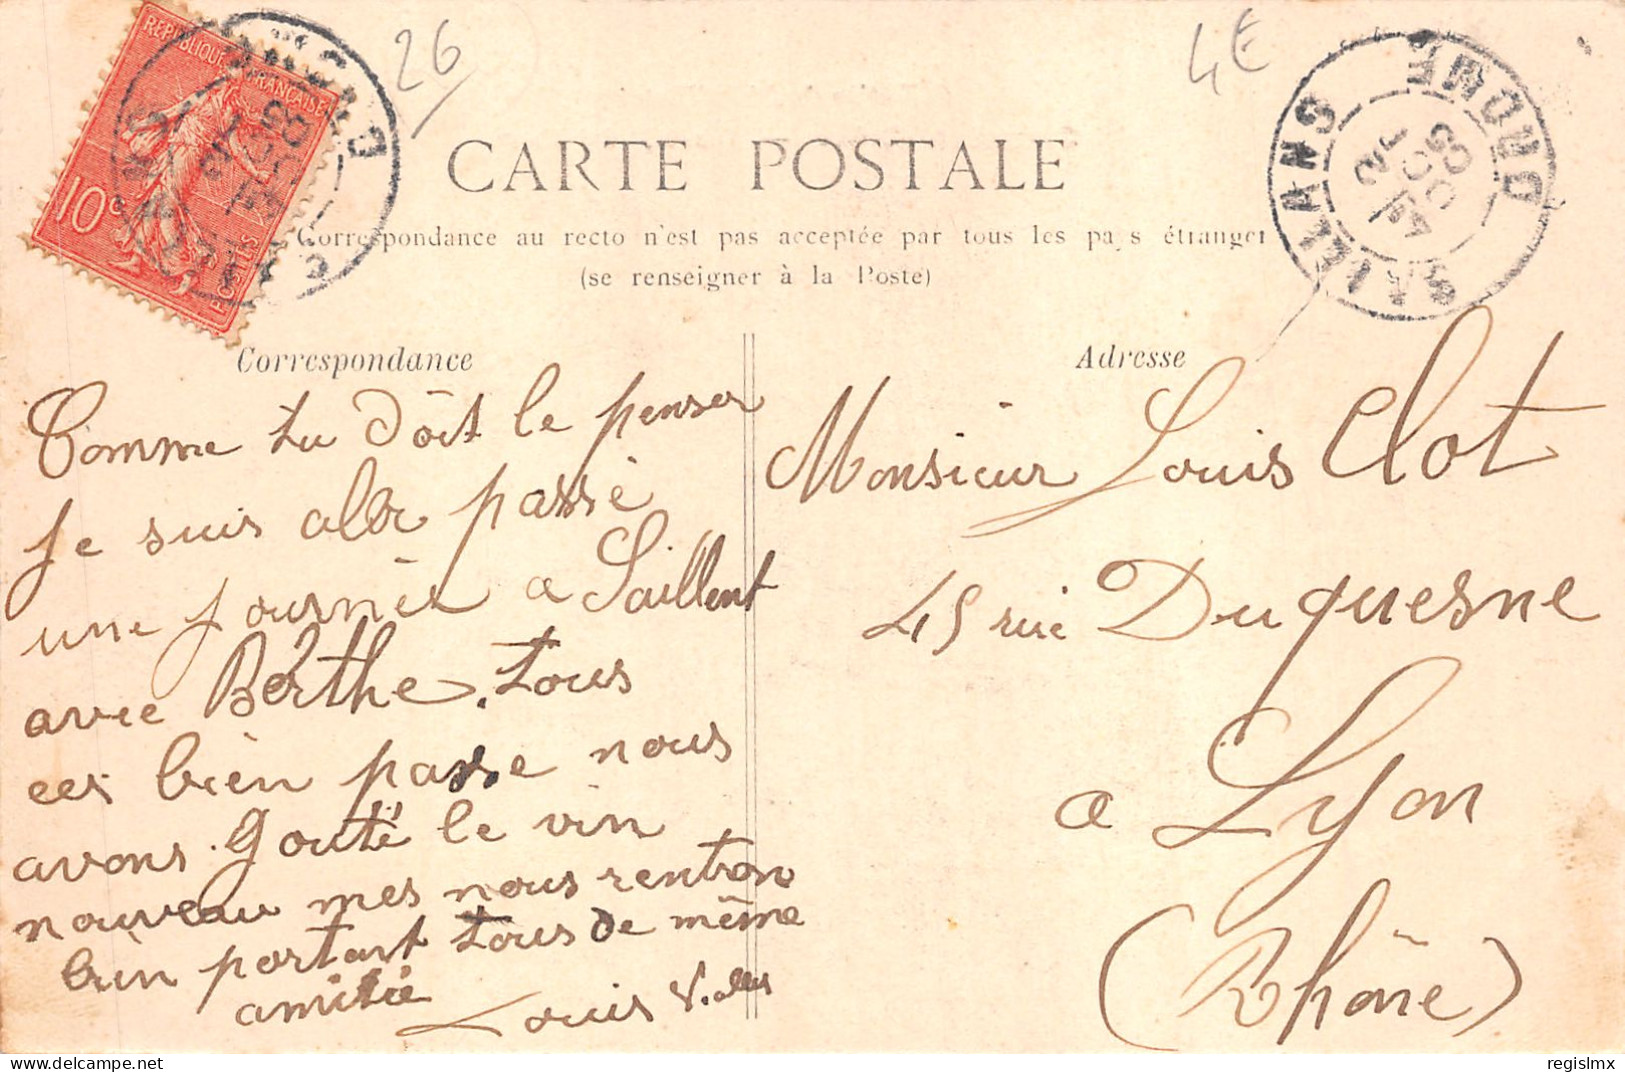 REPUBLIQUE FRANÇAISE
10c
POSTES
26
4E
SAILLANS DROME
CARTE POSTALE
Correspondance au recto n'est pas acceptée par tous les pays étrangers
(se renseigner à la Poste)
Correspondance
Comme tu dôit le penser
Je suis aller passé
une journèe a Saillent
avec Berthe. tous
ces bien passe nous
avons gouté le vin
nouveau mes nous rentron
bien portant tous de même
amitié
Louis
Adresse
Monsieur Louis Clot
45 rue Duquesne
a Lyon
(Rhône)
delcampe.net
regislmx